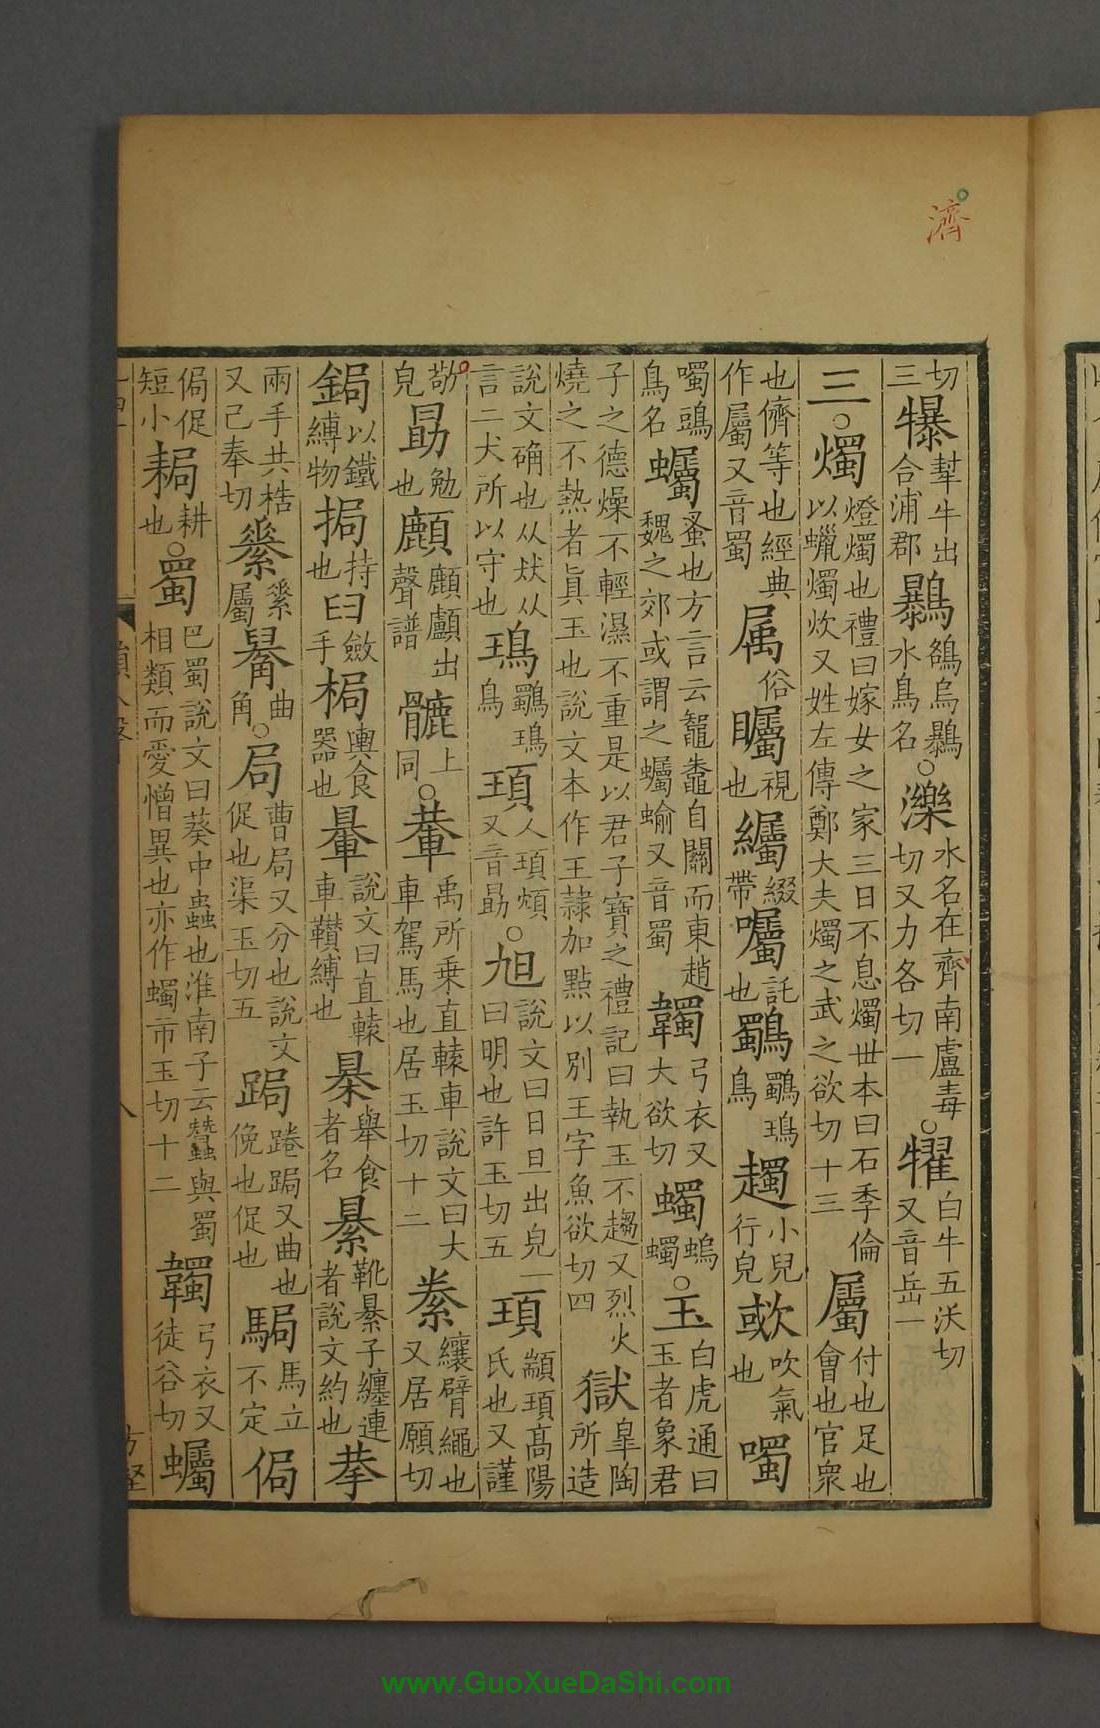 濟
切三犦犎牛出合浦郡䴝鸙烏䴝水鳥名○濼水名在齊南盧毒切又力各切一○㹊白牛五沃切又音岳一
三○燭燈燭也禮曰嫁女之家三日不息燭丗本曰石季倫以蠟燭炊又姓左傳鄭大夫燭之武之欲切十三屬付也足也會也官衆
也儕等也經典作屬又音蜀属俗矚視也䌵綴帶囑託也鸀鸀鳿鳥䠱小兒行皃㰲吹氣也噣
噣鴟鳥名蠾蚤也方言云鼅鼄自關而東趙魏之郊或謂之蠾蝓又音蜀韣弓衣又大欲切蠋螐蠋○玉白虎通曰玉者象君
子之德燥不輕濕不重是以君子寶之禮記曰執玉不趨又烈火燒之不熱者眞玉也說文本作王隷加點以別王字魚欲切四獄臯陶所造
說文确也从㹜从言二犬所以守也鳿鸀鳿鳥頊人頊頻又音勗○旭說文曰日旦出皃一曰明也許玉切五頊顓頊高陽氏也又謹
敬皃勗勉也𩔁𩔁顱出聲譜䯫上同○輂禹所乗直轅車說文曰大車駕馬也居玉切十二𢍏纕臂繩也又居願切
鋦以鐵縛物挶持也臼斂手梮輿食器也𨋨說文曰直轅車䡽縛也梮舉食者名綦靴綦子纏連者說文約也拲
兩手共梏又己奉切𦃓𦃓屬𧤗曲角○局曹局又分也說文促也渠玉切五跼踡跼又曲也俛也促也駶馬立不定侷
侷促短小𦔳耕也○蜀巴蜀說文曰葵中蟲也淮南子云蠶與蜀相類而愛憎異也亦作蠋市玉切十二韣弓衣又徒谷切蠾
方堅
www.GuoXueDaShi.com